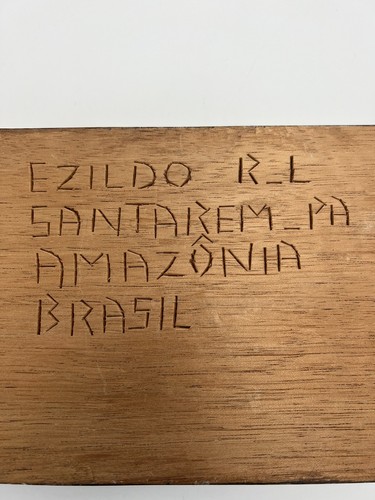 EZILDO R_L
SANTAREM_PA
AMAZÔNIA
BRASIL